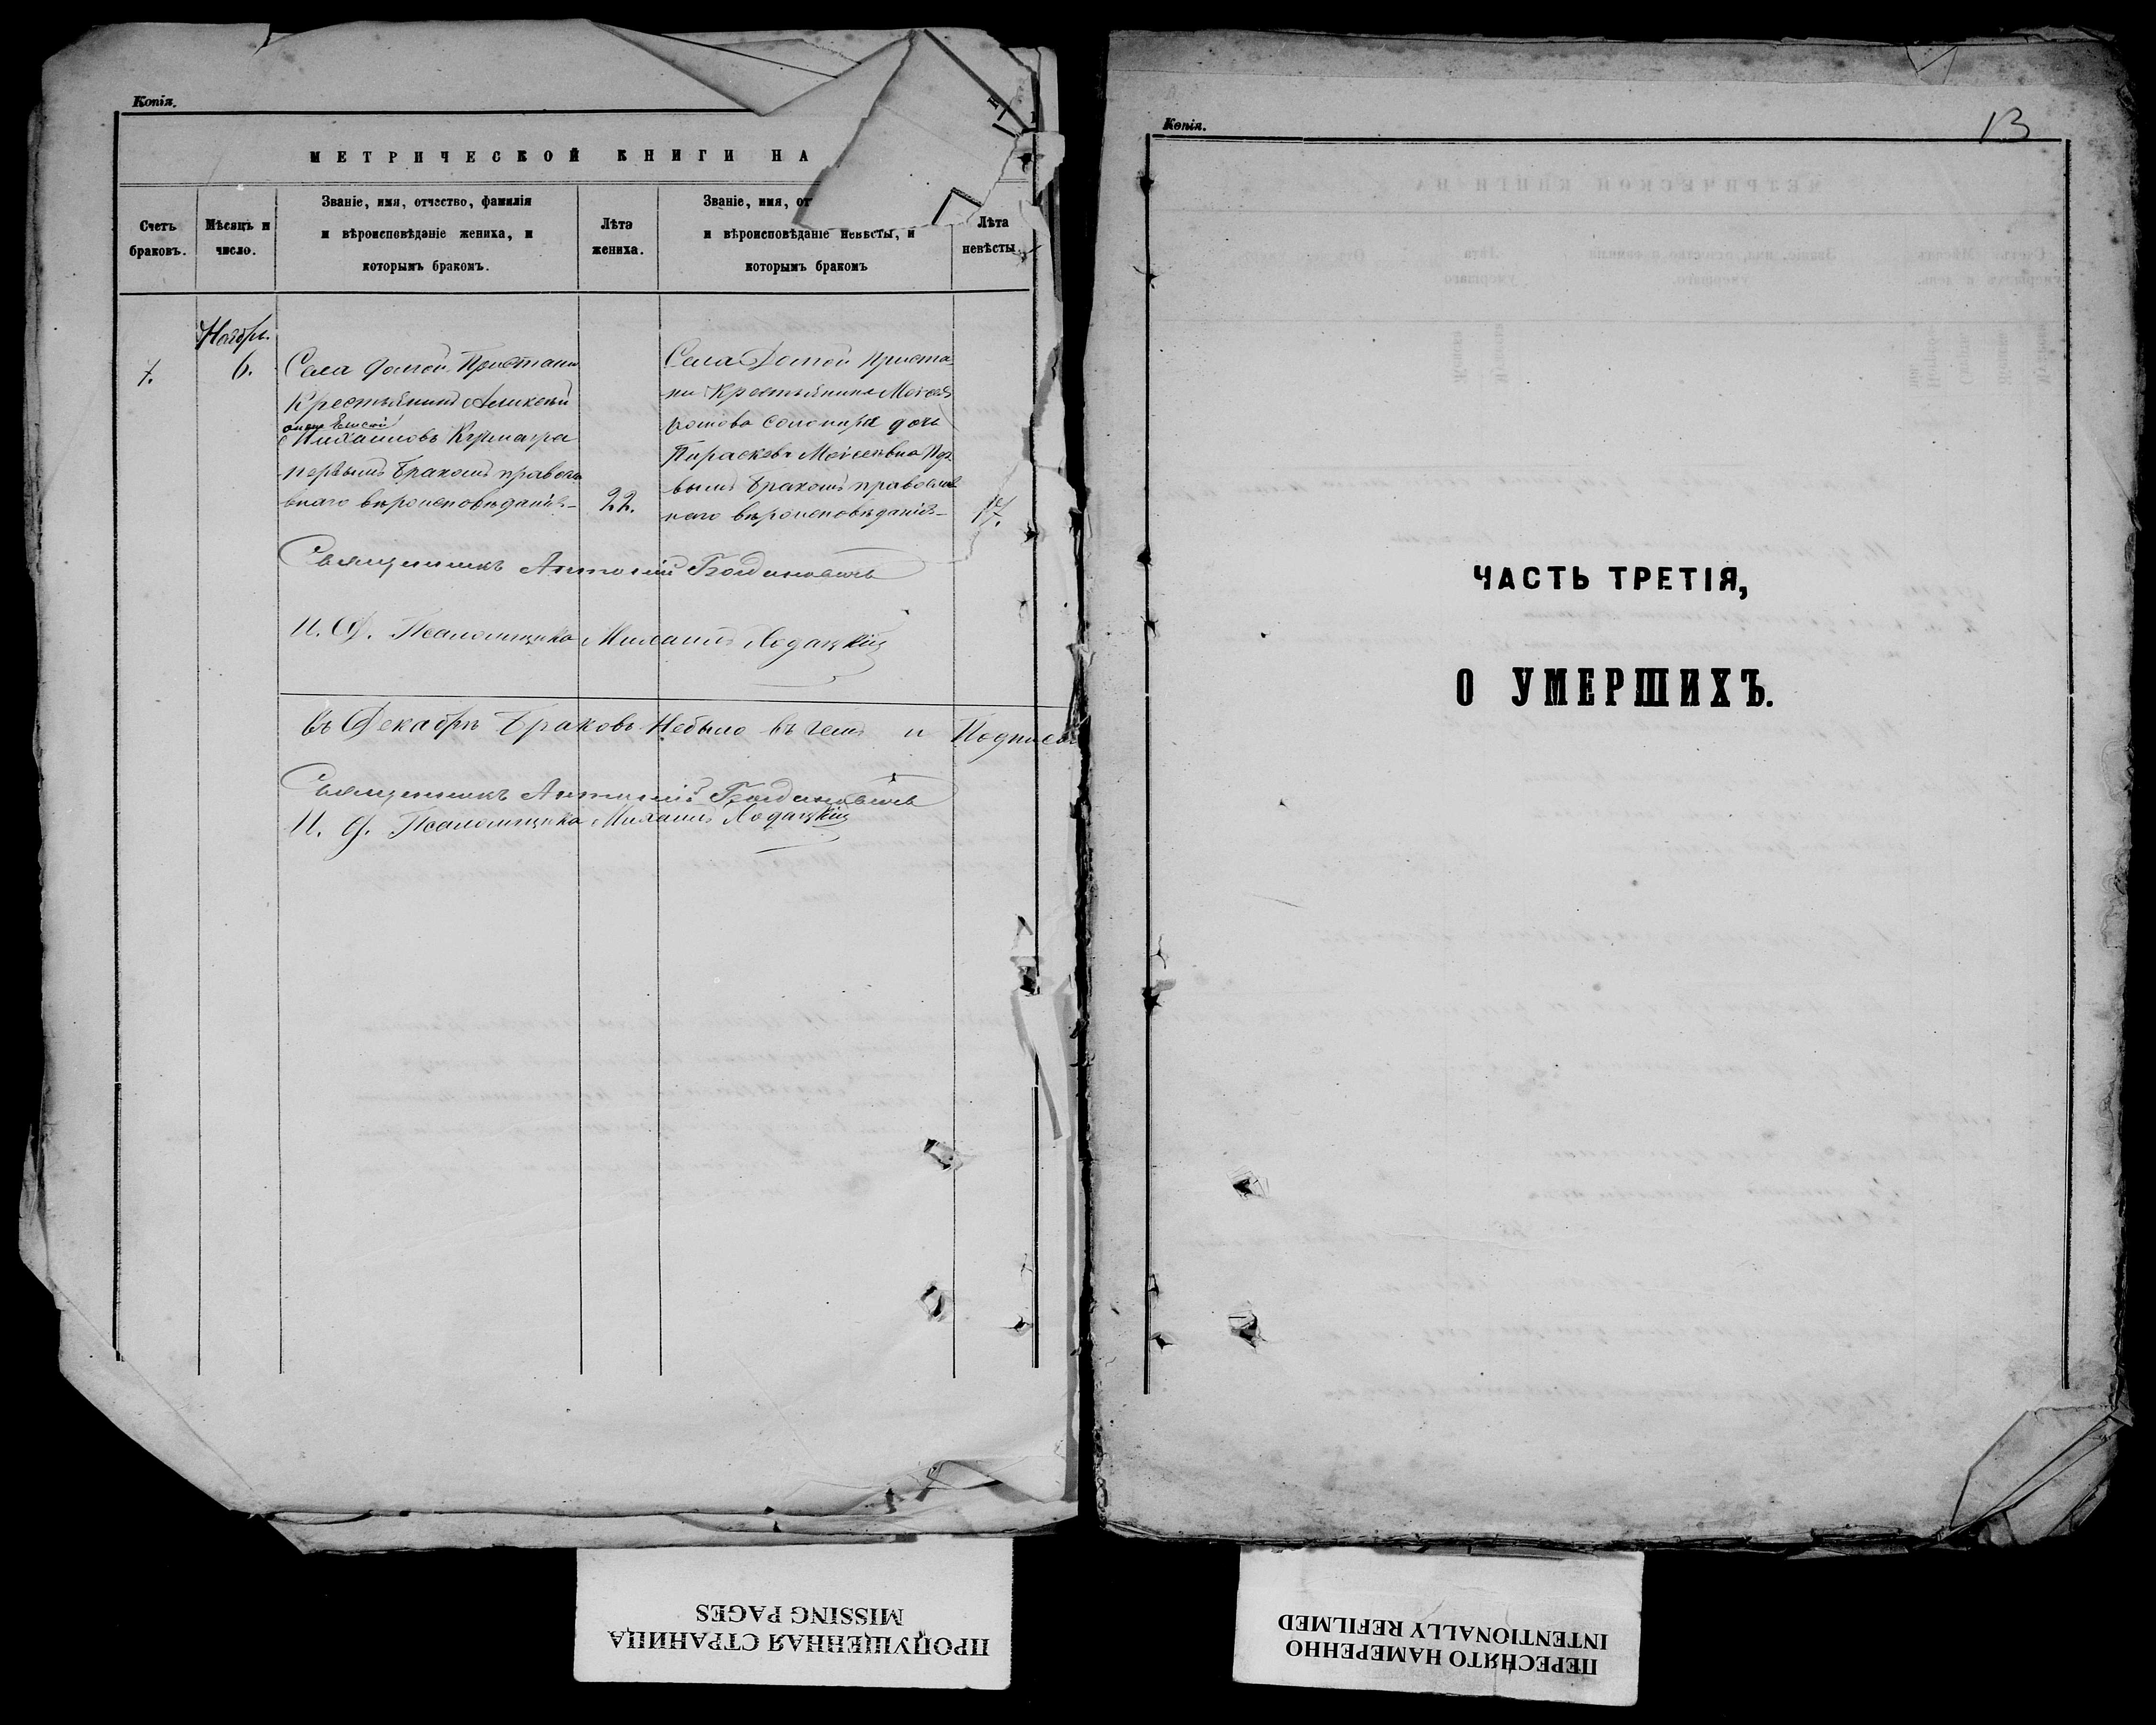 Копія.
МЕТРИЧЕСКОЙ КНИГИ НА
Счетъ браковъ.
Мѣсяцъ и число.
Званіе, имя, отчество, фамилія и вѣроисповѣданіе жениха, и которымъ бракомъ.
Лѣта жениха.
Званіе, имя, от
и вѣроисповѣданіе невѣсты, и которымъ бракомъ
Лѣта невѣсты.
Ноябрь.
7.
6.
Села Долгой Пристани
Крестьянинъ Алексѣй
Михаиловъ
первымъ бракомъ правосла
внаго вѣроисповѣданія
22.
Села Долгой Приста
ни Крестьянина Моисея
дочь
Параскева Моисеевна Пер
вымъ бракомъ православ
наго вѣроисповѣданія
17.
Священникъ Антоній Богдановичъ
И. Д. Псаломщика Михаилъ Ходацкій
Въ Декабрѣ Браковъ Небыло въ чемъ и Подписы
Священникъ Антоній Богдановичъ
И. Д. Псаломщика Михаилъ Ходацкій
ПРОПУЩЕННАЯ СТРАНИЦА
MISSING PAGES
Копія.
13
ЧАСТЬ ТРЕТІЯ,
О УМЕРШИХЪ.
ПЕРЕСНЯТО НАМЕРЕННО
INTENTIONALLY REFILMED